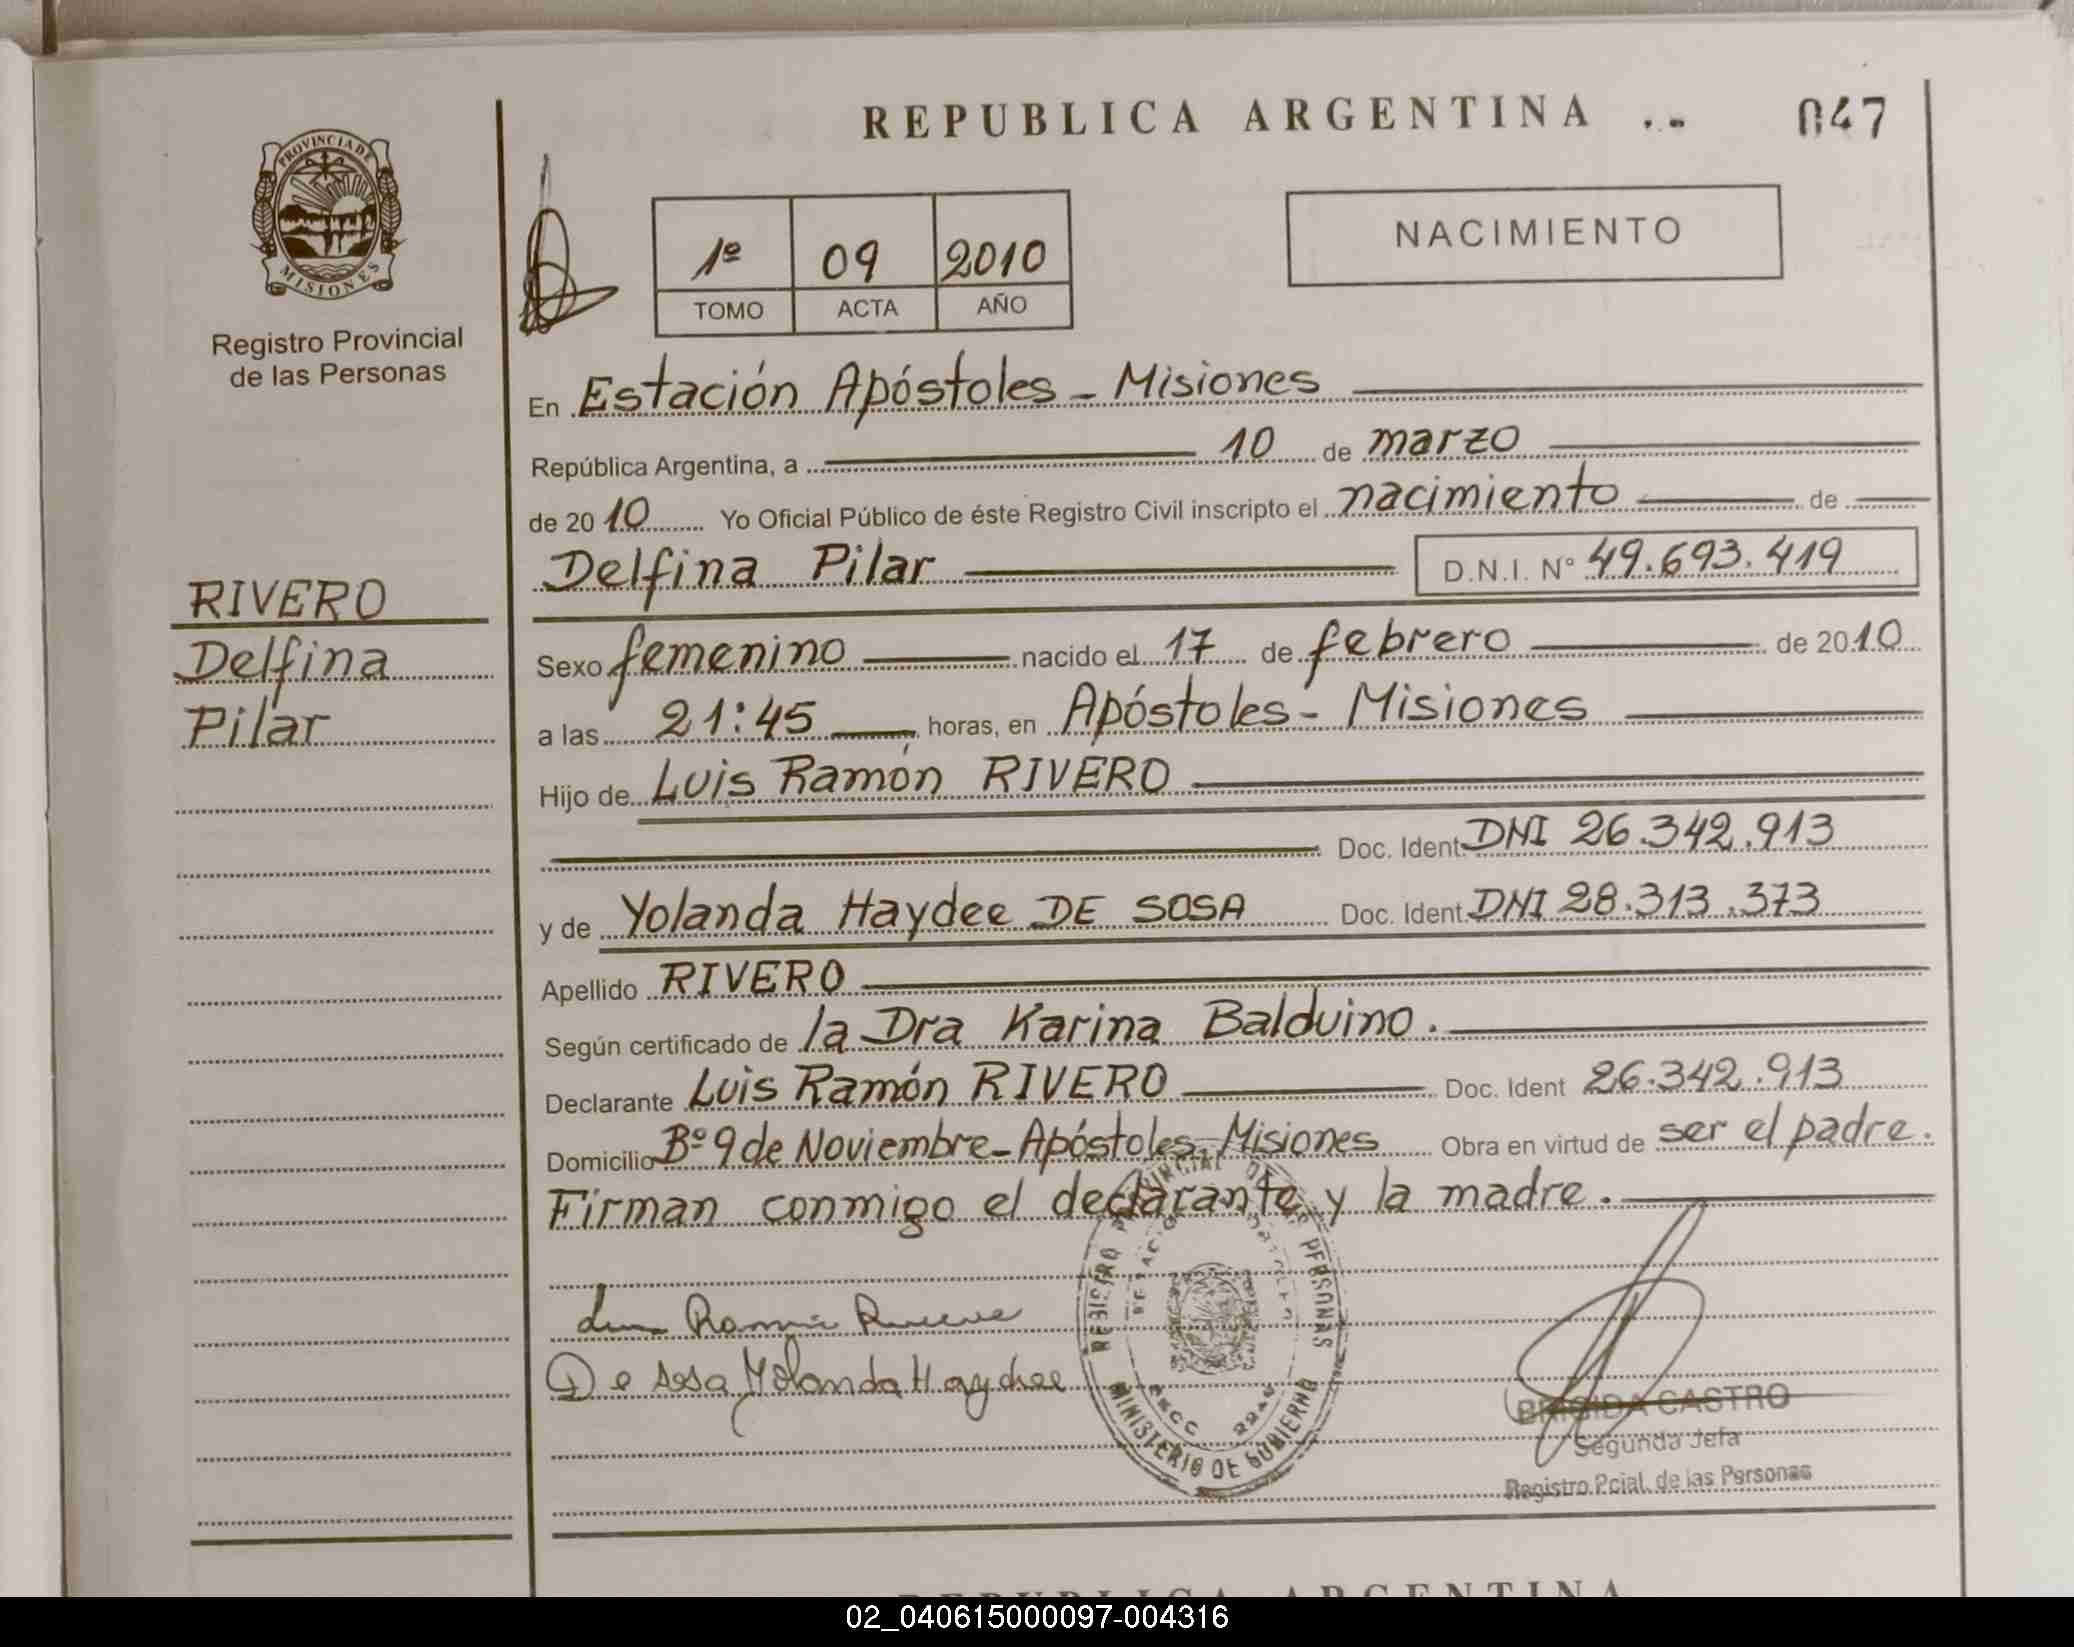 REPUBLICA ARGENTINA
047
PROVINCIA DE MISIONES
Registro Provincial
de las Personas
1º 09 2010
TOMO ACTA AÑO
NACIMIENTO
En Estación Apóstoles - Misiones
República Argentina, a 10 de marzo
de 2010 Yo Oficial Público de éste Registro Civil inscripto el nacimiento de
Delfina Pilar D.N.I. Nº 49.693.419
RIVERO
Delfina
Pilar
Sexo femenino nacido el 17 de febrero de 2010
a las 21:45 horas, en Apóstoles - Misiones
Hijo de Luis Ramón RIVERO
Doc. Ident. DNI 26.342.913
y de Yolanda Haydee DE SOSA Doc. Ident. DNI 28.313.373
Apellido RIVERO
Según certificado de la Dra Karina Balduino.
Declarante Luis Ramón RIVERO Doc. Ident 26.342.913
Domicilio Bº 9 de Noviembre - Apóstoles - Misiones Obra en virtud de ser el padre.
Firman conmigo el declarante y la madre.
REGISTRO PROVINCIAL DE LAS PERSONAS
MINISTERIO DE GOBIERNO
De sosa Yolanda Haydee
BRIGIDA CASTRO
Segunda Jefa
Registro Pcial. de las Personas
REPUBLICA ARGENTINA
02_040615000097-004316